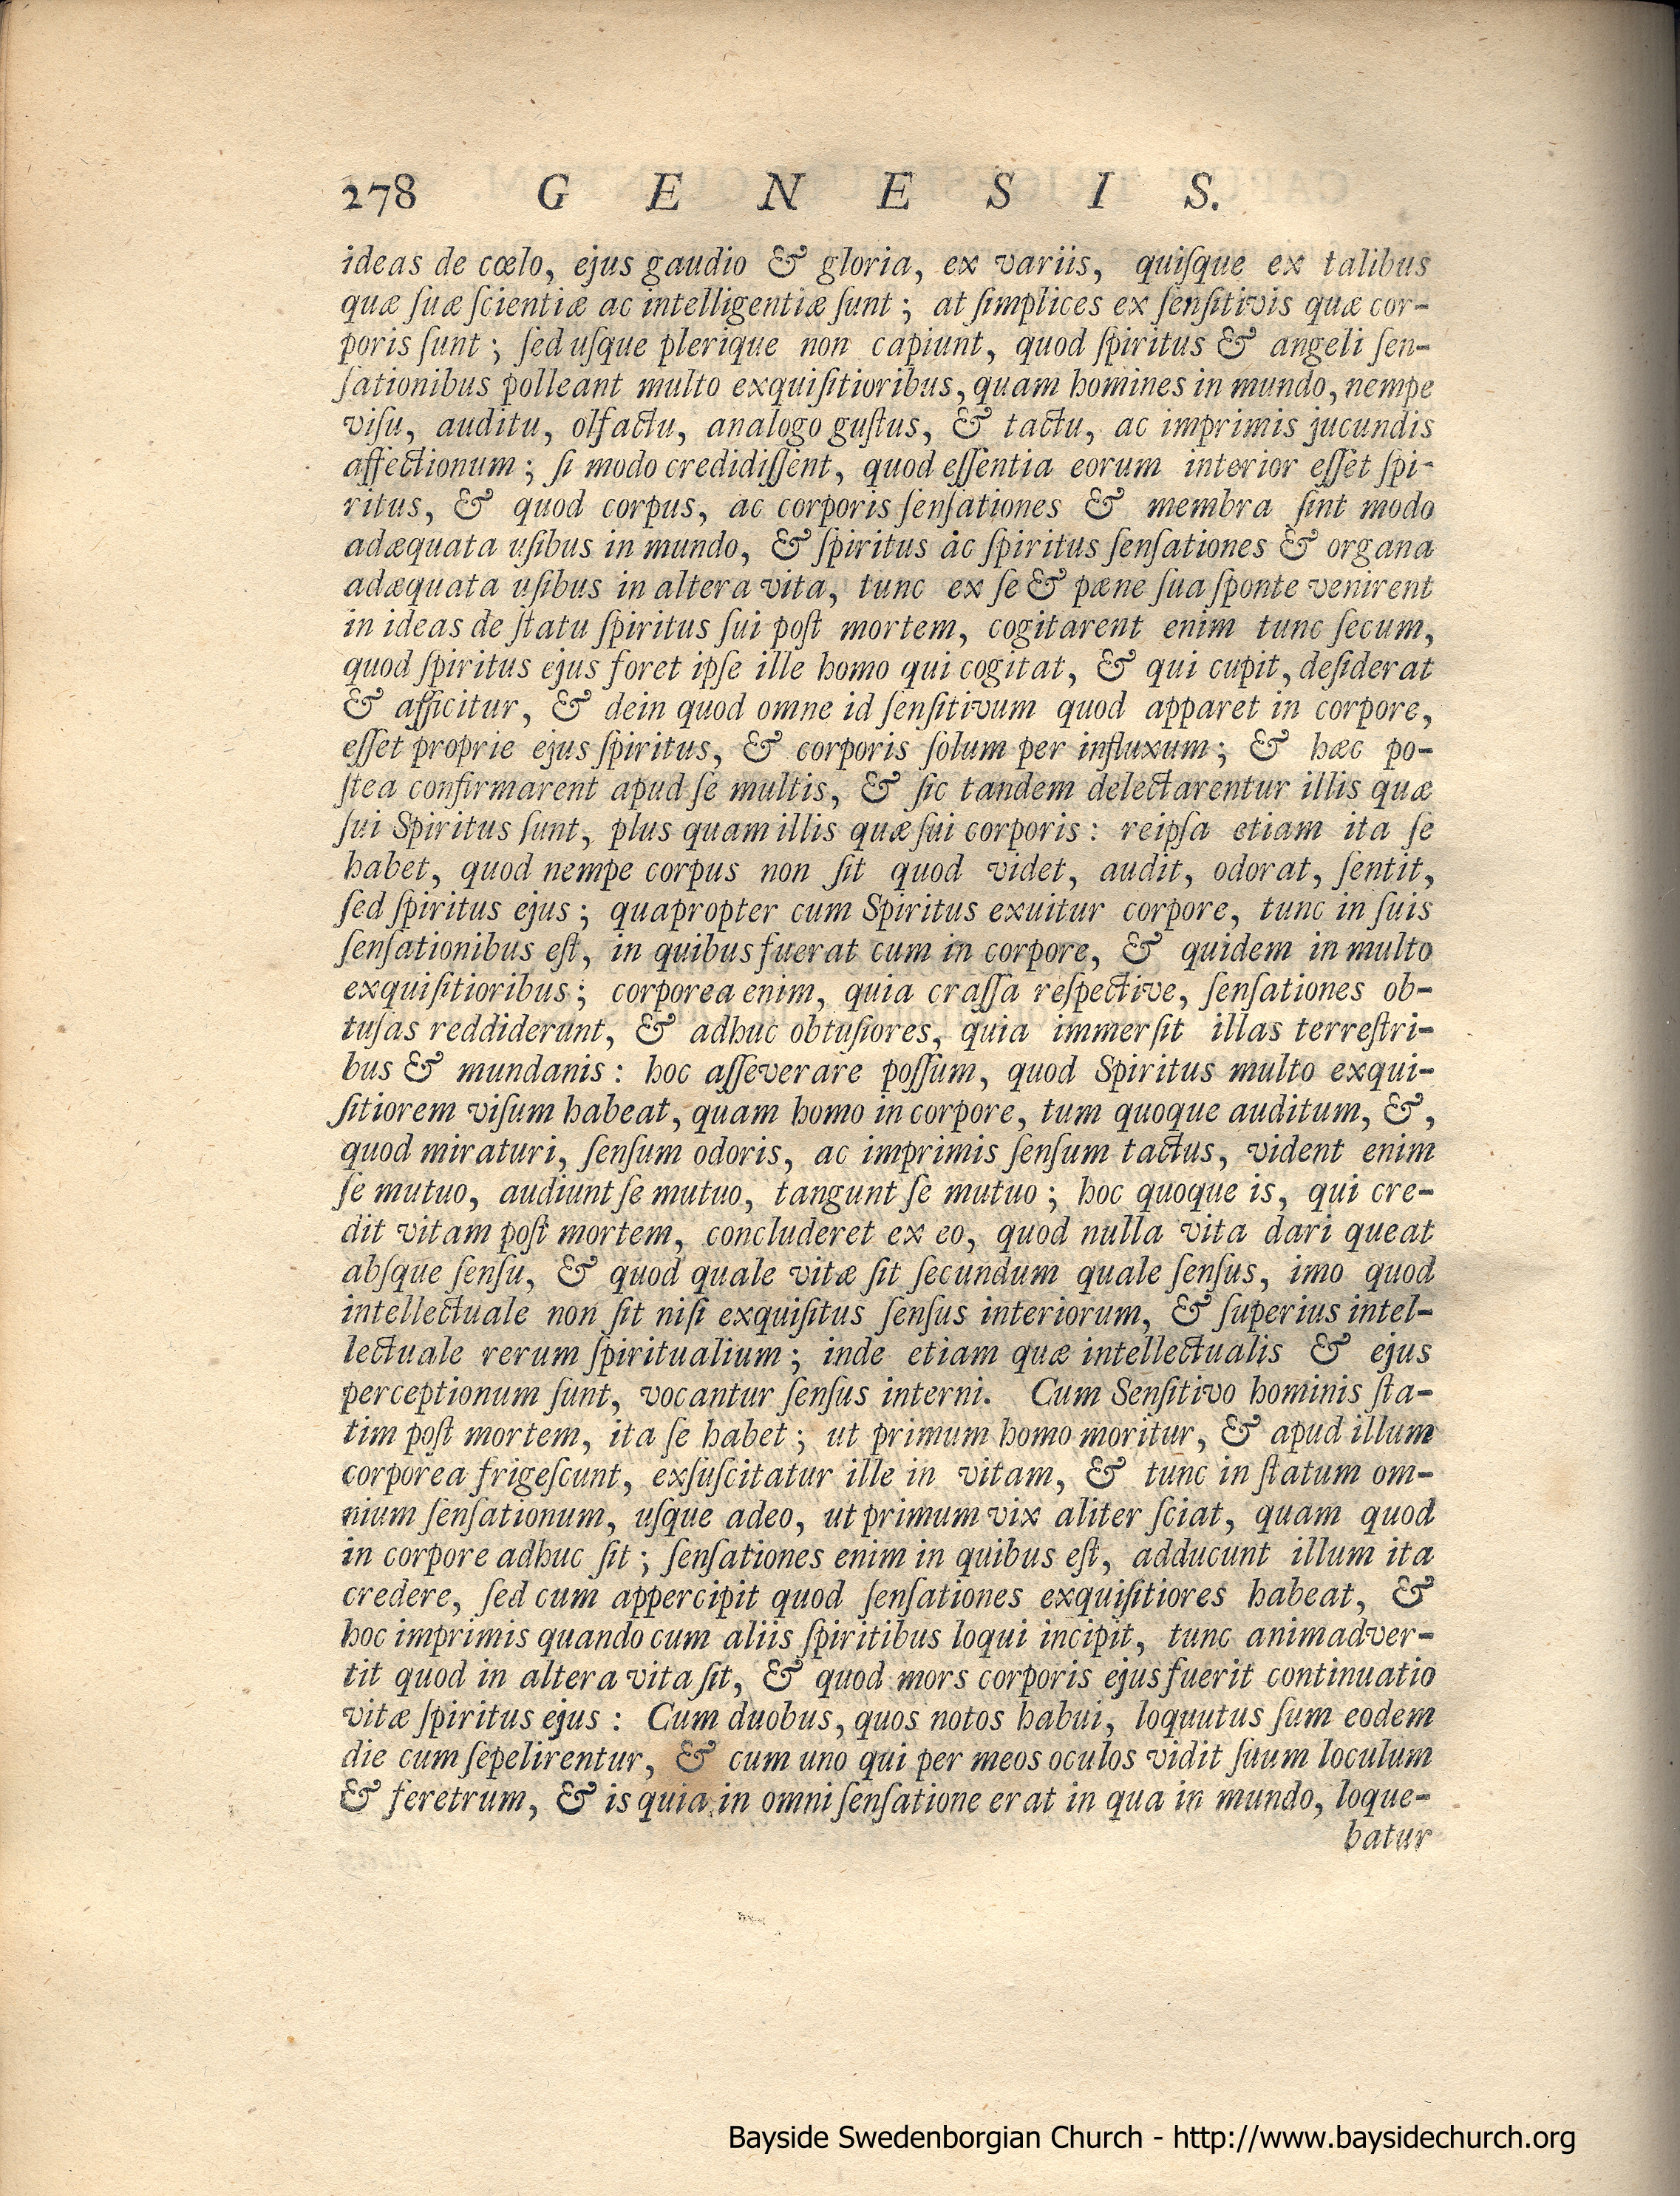 278 G E N E S I S.
ideas de cœlo, ejus gaudio & gloria, ex variis, quiſque ex talibus
quæ ſuæ ſcientiæ ac intelligentiæ ſunt; at ſimplices ex ſenſitivis quæ cor-
poris ſunt; ſed uſque plerique non capiunt, quod ſpiritus & angeli ſen-
ſationibus polleant multo exquiſitioribus, quam homines in mundo, nempe
viſu, auditu, olfactu, analogo guſtus, & tactu, ac imprimis jucundis
affectionum; ſi modo credidiſſent, quod eſſentia eorum interior eſſet ſpi-
ritus, & quod corpus, ac corporis ſenſationes & membra ſint modo
adæquata uſibus in mundo, & ſpiritus ac ſpiritus ſenſationes & organa
adæquata uſibus in altera vita, tunc ex ſe & pæne ſua ſponte venirent
in ideas de ſtatu ſpiritus ſui poſt mortem, cogitarent enim tunc ſecum,
quod ſpiritus ejus foret ipſe ille homo qui cogitat, & qui cupit, deſiderat
& afficitur, & dein quod omne id ſenſitivum quod apparet in corpore,
eſſet proprie ejus ſpiritus, & corporis ſolum per influxum; & hæc po-
ſtea confirmarent apud ſe multis, & ſic tandem delectarentur illis quæ
ſui Spiritus ſunt, plus quam illis quæ ſui corporis: reipſa etiam ita ſe
habet, quod nempe corpus non ſit quod videt, audit, odorat, ſentit,
ſed ſpiritus ejus; quapropter cum Spiritus exuitur corpore, tunc in ſuis
ſenſationibus eſt, in quibus fuerat cum in corpore, & quidem in multo
exquiſitioribus; corporea enim, quia craſſa reſpective, ſenſationes ob-
tuſas reddiderunt, & adhuc obtuſiores, quia immerſit illas terreſtri-
bus & mundanis: hoc aſſeverare poſſum, quod Spiritus multo exqui-
ſitiorem viſum habeat, quam homo in corpore, tum quoque auditum, &,
quod miraturi, ſenſum odoris, ac imprimis ſenſum tactus, vident enim
ſe mutuo, audiunt ſe mutuo, tangunt ſe mutuo; hoc quoque is, qui cre-
dit vitam poſt mortem, concluderet ex eo, quod nulla vita dari queat
abſque ſenſu, & quod quale vitæ ſit ſecundum quale ſenſus, imo quod
intellectuale non ſit niſi exquiſitus ſenſus interiorum, & ſuperius intel-
lectuale rerum ſpiritualium; inde etiam quæ intellectualis & ejus
perceptionum ſunt, vocantur ſenſus interni. Cum Senſitivo hominis ſta-
tim poſt mortem, ita ſe habet; ut primum homo moritur, & apud illum
corporea frigeſcunt, exſuſcitatur ille in vitam, & tunc in ſtatum om-
nium ſenſationum, uſque adeo, ut primum vix aliter ſciat, quam quod
in corpore adhuc ſit; ſenſationes enim in quibus eſt, adducunt illum ita
credere, ſed cum appercipit quod ſenſationes exquiſitiores habeat, &
hoc imprimis quando cum aliis ſpiritibus loqui incipit, tunc animadver-
tit quod in altera vita ſit, & quod mors corporis ejus fuerit continuatio
vitæ ſpiritus ejus: Cum duobus, quos notos habui, loquutus ſum eodem
die cum ſepelirentur, & cum uno qui per meos oculos vidit ſuum loculum
& feretrum, & is quia in omni ſenſatione erat in qua in mundo, loque-
batur
Bayside Swedenborgian Church - http://www.baysidechurch.org